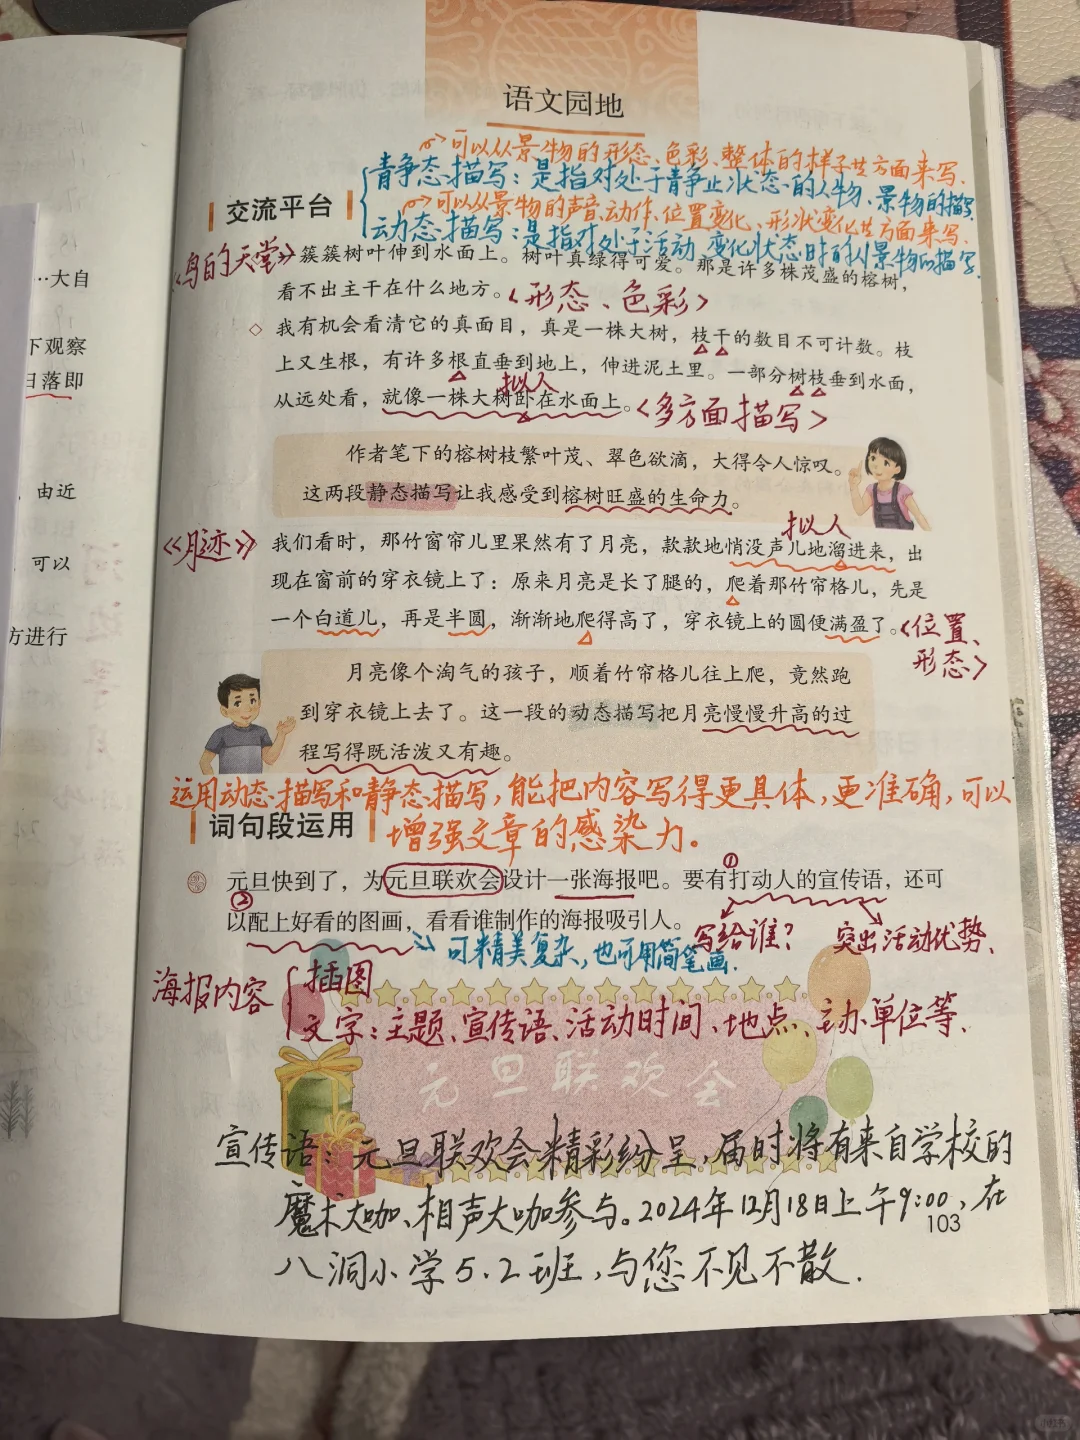 语文园地
可以从景物的形态、色彩、整体的样子等方面来写。
静态描写：是指对处于静止状态的人物、景物的描写。
交流平台
可以从景物的声音、动作、位置变化、形状变化等方面来写。
动态描写：是指对处于活动、变化状态时的人景物的描写。
《鸟的天堂》
簇簇树叶伸到水面上。树叶真绿得可爱。那是许多株茂盛的榕树，
看不出主干在什么地方。<形态、色彩>
◇ 我有机会看清它的真面目，真是一株大树，枝干的数目不可计数。枝
上又生根，有许多根直垂到地上，伸进泥土里。一部分树枝垂到水面，
拟人
从远处看，就像一株大树卧在水面上。<多方面描写>
作者笔下的榕树枝繁叶茂、翠色欲滴，大得令人惊叹。
这两段静态描写让我感受到榕树旺盛的生命力。
拟人
《月迹》
我们看时，那竹窗帘儿里果然有了月亮，款款地悄没声儿地溜进来，出
现在窗前的穿衣镜上了：原来月亮是长了腿的，爬着那竹帘格儿，先是
一个白道儿，再是半圆，渐渐地爬得高了，穿衣镜上的圆便满盈了。<位置、
形态>
月亮像个淘气的孩子，顺着竹帘格儿往上爬，竟然跑
到穿衣镜上去了。这一段的动态描写把月亮慢慢升高的过
程写得既活泼又有趣。
运用动态描写和静态描写，能把内容写得更具体，更准确，可以
词句段运用
增强文章的感染力。
元旦快到了，为元旦联欢会设计一张海报吧。要有①打动人的宣传语，还可
②以配上好看的图画，看看谁制作的海报吸引人。
写给谁？ 突出活动优势、
可精美复杂，也可用简笔画.
海报内容
插图
文字：主题、宣传语、活动时间、地点、主办单位等、
元旦联欢会
宣传语：元旦联欢会精彩纷呈，届时将有来自学校的
魔术大咖、相声大咖参与。2024年12月18日上午9:00，在
103
八洞小学5.2班，与您不见不散.
…大自
下观察
日落即
由近
可以
方进行